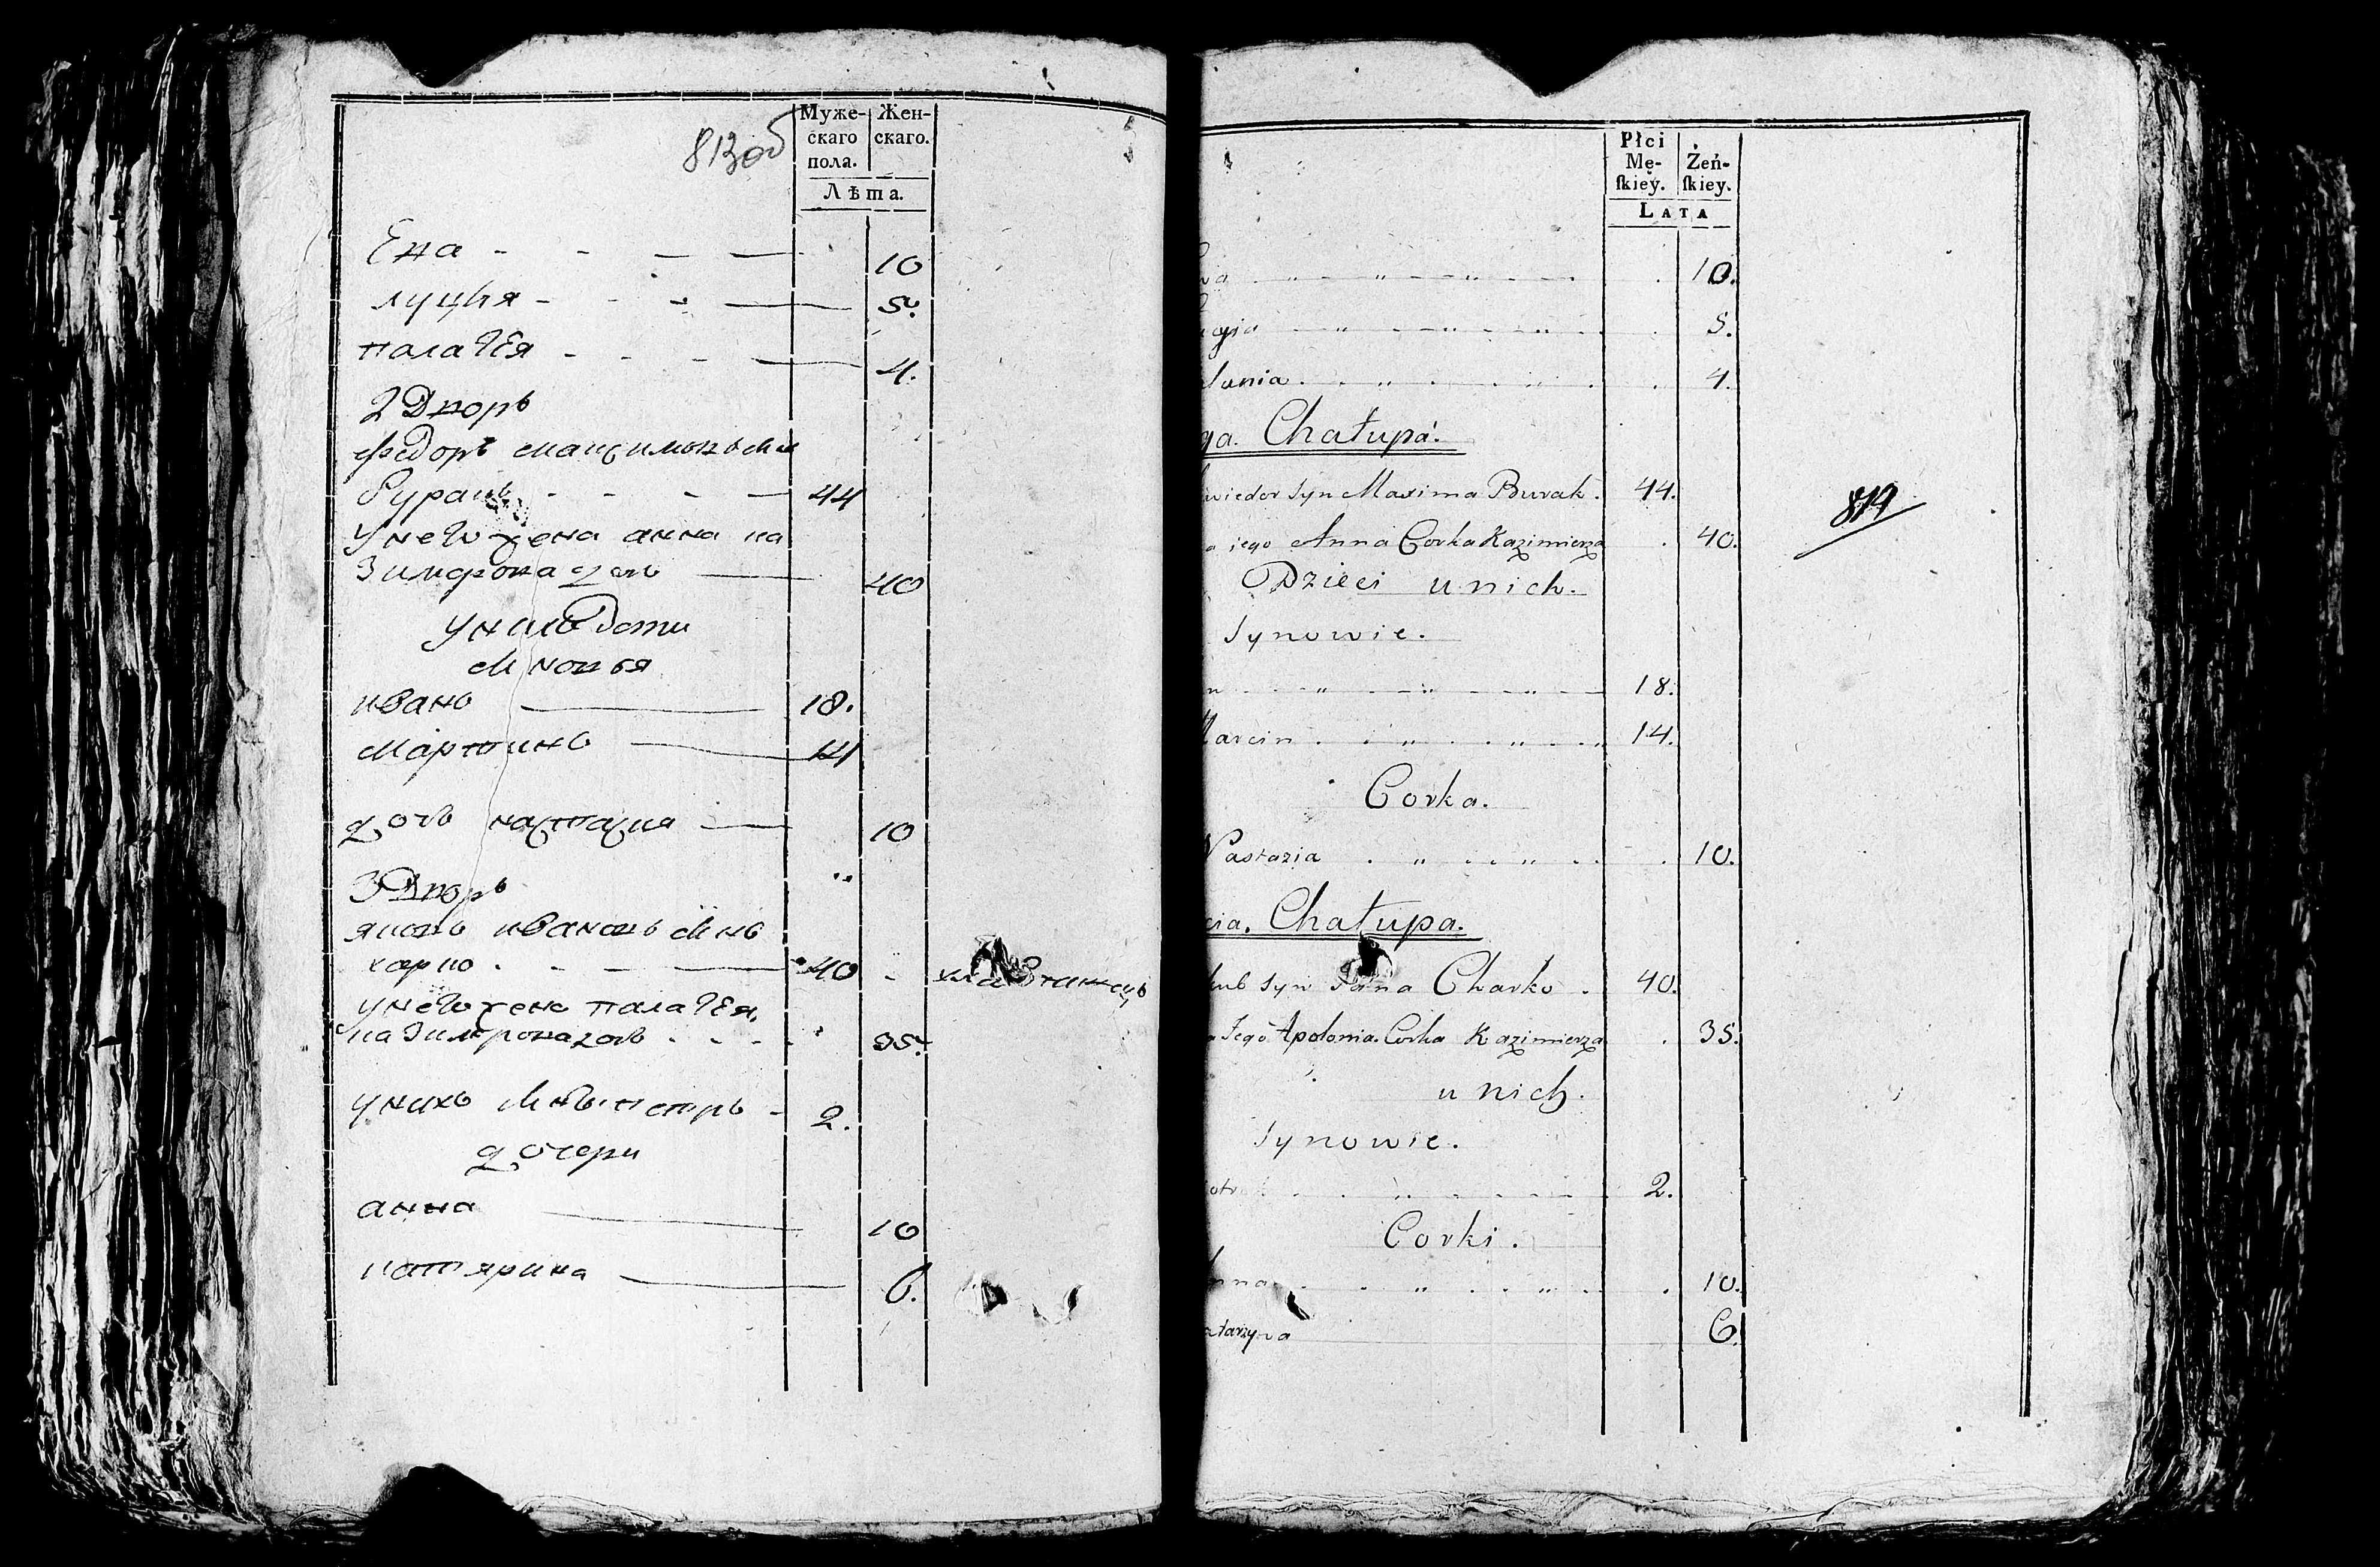 813об
Муже- Жен-
скаго скаго.
пола.
Лѣта.
Ева 10
луцыя 5.
палагЕя 4.
2 Дворъ
федоръ максимовъ сынъ
Буракъ 44
У него жена анна ка
зимрова дочь 40
У нихъ дети
сыновья
иванъ 18.
Мартинъ 14
дочь настасия 10
3 Дворъ
яковъ ивановъ сынъ
харко 40
У него жена палагЕя
казимрова дочь 35.
У нихъ сынъ петръ 2.
дочери
анна 10
катярина 6.
Płci
Mę- Żeń-
ſkiey. ſkiey.
LATA
wa 10.
ucyia 5.
lania 4.
ga. Chałupa.
wiedor Syn Maxima Burak. 44.
814
a jego Anna Corka Kazimierza 40.
Dzieci u nich.
Synowie.
n 18.
Marcin 14.
Corka.
Nastazia 10.
cia. Chałupa.
kub Syn Jana Charko 40.
a Jego Apolonia Corka Kazimierza 35.
u nich.
Synowie.
otr 2.
Corki.
nna 10.
atarzyna 6.